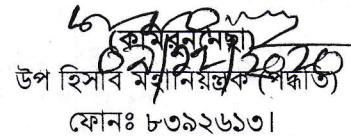 (কামরুন নেছা)
০৭/১২/২০২০
উপ হিসাব মহানিয়ন্ত্রক (পদ্ধতি)
ফোনঃ ৮৩৯২৬১৩।